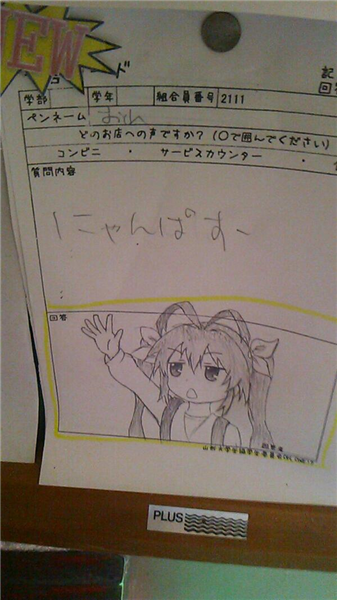 NEW
ド
記
回
学部 学年 組合員番号 2111
ペンネーム
どのお店への声ですか?(○で囲んでください)
コンビニ ・ サービスカウンター ・
質問内容
にゃんぱすー
回答
PLUS